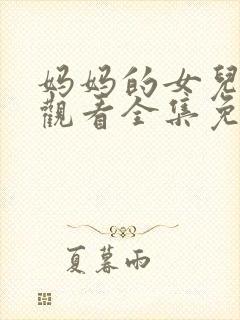 妈妈的女兒
觀看全集免
夏暮雨